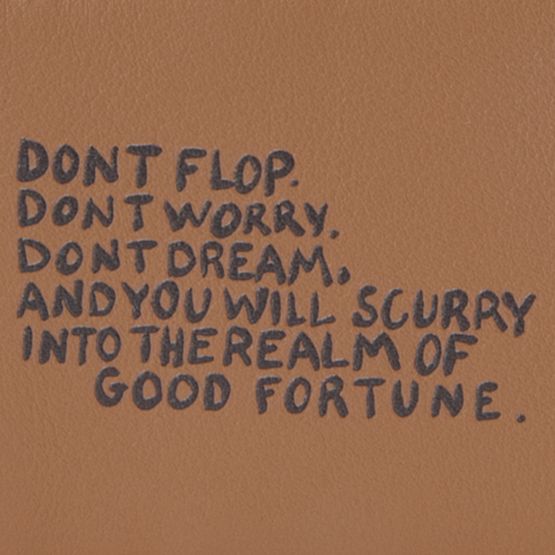 DONT FLOP.
DONT WORRY.
DONT DREAM.
AND YOU WILL SCURRY
INTO THE REALM OF
GOOD FORTUNE.